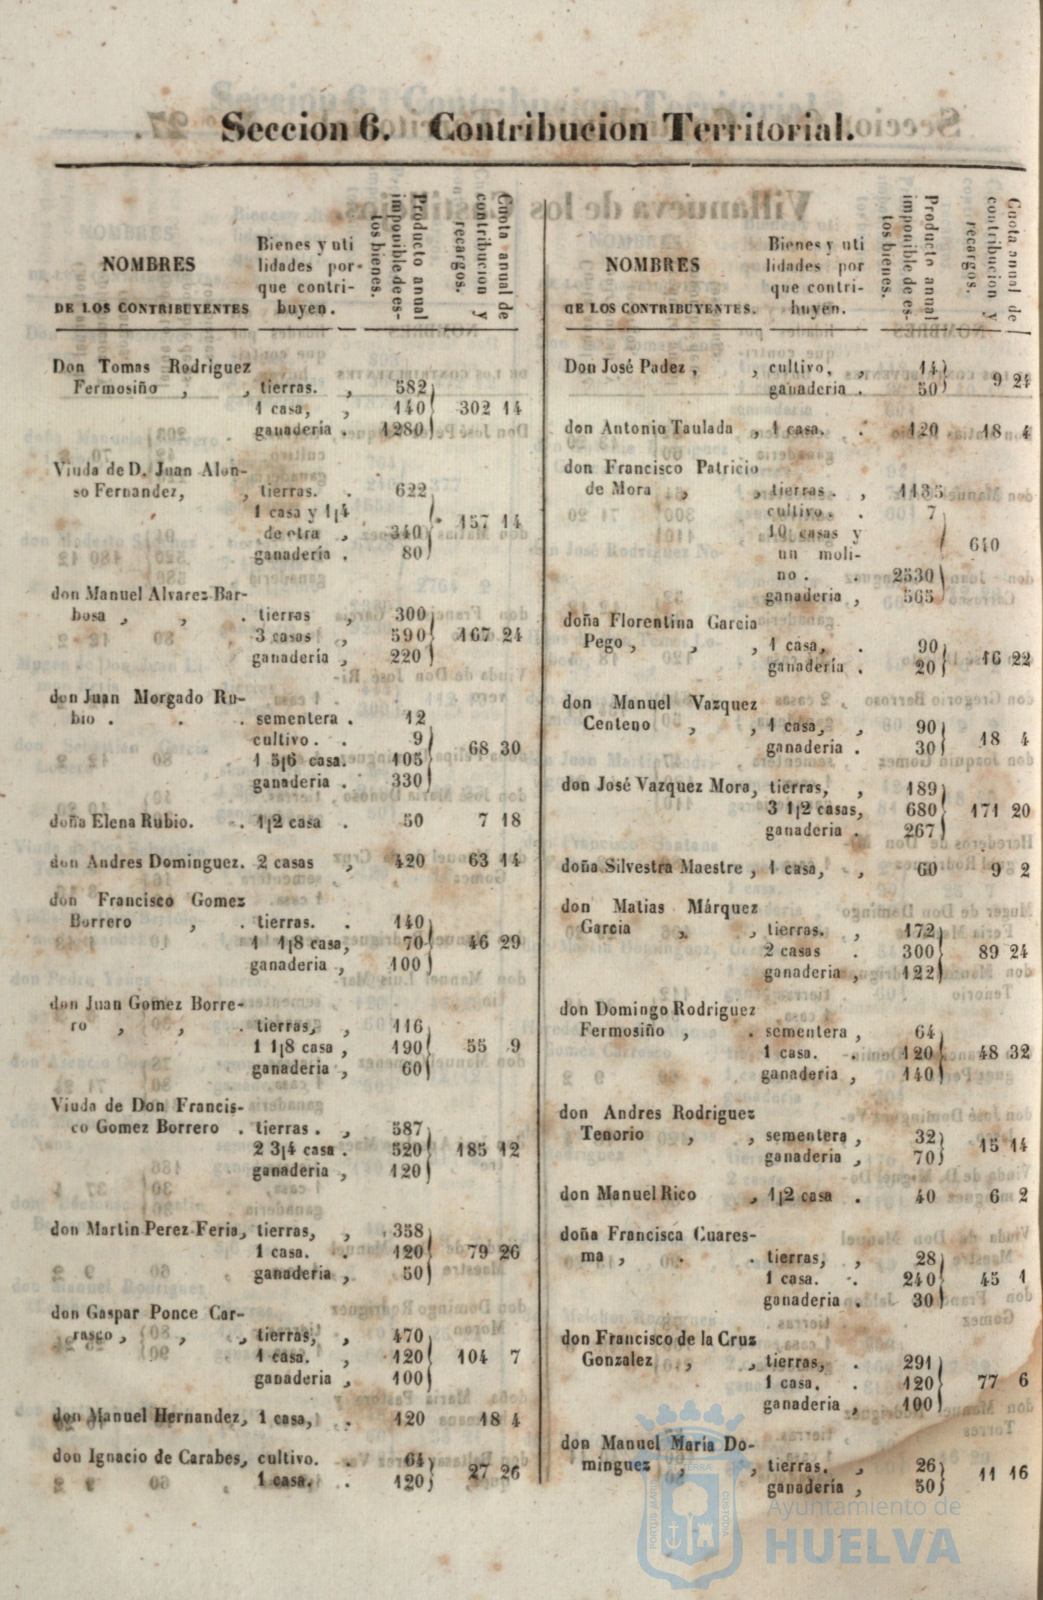 Seccion 6. Contribucion Territorial.
NOMBRES
DE LOS CONTRIBUYENTES
Bienes y uti
lidades por-
que contri-
buyen.
Producto anual
imponible de es-
tos bienes.
Cuota anual de
contribucion y
recargos.
Don Tomas Rodriguez
Fermosiño , , tierras. , 582
1 casa, , 140 302 14
ganadería . 1280
Viuda de D. Juan Alon-
so Fernandez, , tierras. . 622
1 casa y 1¡4
de otra , 340 157 14
ganadería . 80
don Manuel Alvarez Bar-
bosa , , . tierras , 300
3 casas , 590 167 24
ganadería , 220
don Juan Morgado Ru-
bio . . . sementera . 12
cultivo. . 9
1 5¡6 casa. 105 68 30
ganaderia . 330
doña Elena Rubio. . 1¡2 casa . 50 7 18
don Andres Dominguez. 2 casas , 420 63 14
don Francisco Gomez
Borrero , . tierras. . 140
1 1¡8 casa, 70 46 29
ganaderia , 100
don Juan Gomez Borre-
ro , , . tierras, , 116
1 1¡8 casa , 190 55 9
ganaderia , 60
Viuda de Don Francis-
co Gomez Borrero . tierras . , 587
2 3¡4 casa . 520 185 12
ganaderia , 120
don Martin Perez Feria, tierras, , 358
1 casa. . 120 79 26
ganaderia , 50
don Gaspar Ponce Car-
rasco , , , tierras, , 470
1 casa. , 120 104 7
ganaderia , 100
don Manuel Hernandez, 1 casa, . 120 18 4
don Ignacio de Carabes, cultivo. . 64
1 casa. . 120 27 26
NOMBRES
DE LOS CONTRIBUYENTES.
Bienes y uti
lidades por
que contri-
buyen.
Producto anual
imponible de es-
tos bienes.
Cuota anual de
contribucion y
recargos.
Don José Padez , , cultivo, , 14
ganaderia . 50 9 24
don Antonio Taulada , 1 casa. . 120 18 4
don Francisco Patricio
de Mora , , tierras . , 1135
cultivo. . 7
10 casas y
un moli- 640
no . . 2530
ganaderia , 565
doña Florentina Garcia
Pego , , , 1 casa, . 90
ganadería . 20 16 22
don Manuel Vazquez
Centeno , , 1 casa, , 90
ganaderia . 30 18 4
don José Vazquez Mora, tierras, , 189
3 1¡2 casas, 680 171 20
ganaderia . 267
doña Silvestra Maestre , 1 casa, , 60 9 2
don Matias Márquez
Garcia , , tierras. , 172
2 casas . 300 89 24
ganaderia , 122
don Domingo Rodriguez
Fermosiño , . sementera , 64
1 casa. . 120 48 32
ganaderia , 140
don Andres Rodriguez
Tenorio , , sementera , 32
ganaderia , 70 15 14
don Manuel Rico , 1¡2 casa . 40 6 2
doña Francisca Cuares-
ma , . . tierras, 28
1 casa. . 240 45 1
ganaderia . 30
don Francisco de la Cruz
Gonzalez , , tierras, . 291
1 casa. . 120 77 6
ganaderia , 100
don Manuel María Do-
minguez , , tierras. , 26
ganadería , 50 11 16
Ayuntamiento de
HUELVA